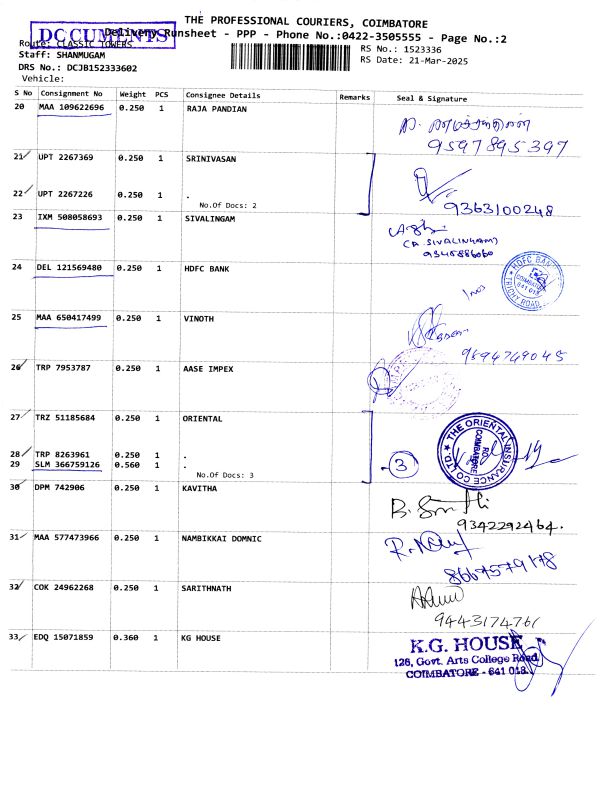 THE PROFESSIONAL COURIERS, COIMBATORE
DOCUMENTS
Delivery Runsheet - PPP - Phone No.:0422-3505555 - Page No.:2
Route: CLASSIC TOWERS
RS No.: 1523336
Staff: SHANMUGAM
RS Date: 21-Mar-2025
DRS No.: DCJB152333602
Vehicle:
S No Consignment No Weight PCS Consignee Details Remarks Seal & Signature
20 MAA 109622696 0.250 1 RAJA PANDIAN
9597895397
21 UPT 2267369 0.250 1 SRINIVASAN
22 UPT 2267226 0.250 1 .
No.Of Docs: 2
9363100248
23 IXM 508058693 0.250 1 SIVALINGAM
(A. SIVALINGAM)
24 DEL 121569480 0.250 1 HDFC BANK
HDFC BANK
COIMBATORE
641 018
TRICHY ROAD
25 MAA 650417499 0.250 1 VINOTH
9694749045
26 TRP 7953787 0.250 1 AASE IMPEX
27 TRZ 51185684 0.250 1 ORIENTAL
THE ORIENTAL INSURANCE CO. LTD.
RO
COIMBATORE
28 TRP 8263961 0.250 1 .
29 SLM 366759126 0.560 1 .
3
No.Of Docs: 3
30 DPM 742906 0.250 1 KAVITHA
9342292464.
31 MAA 577473966 0.250 1 NAMBIKKAI DOMNIC
8667579178
32 COK 24962268 0.250 1 SARITHNATH
9443174761
33 EDQ 15071859 0.360 1 KG HOUSE
K.G. HOUSE
126, Govt. Arts College Road,
COIMBATORE - 641 018.